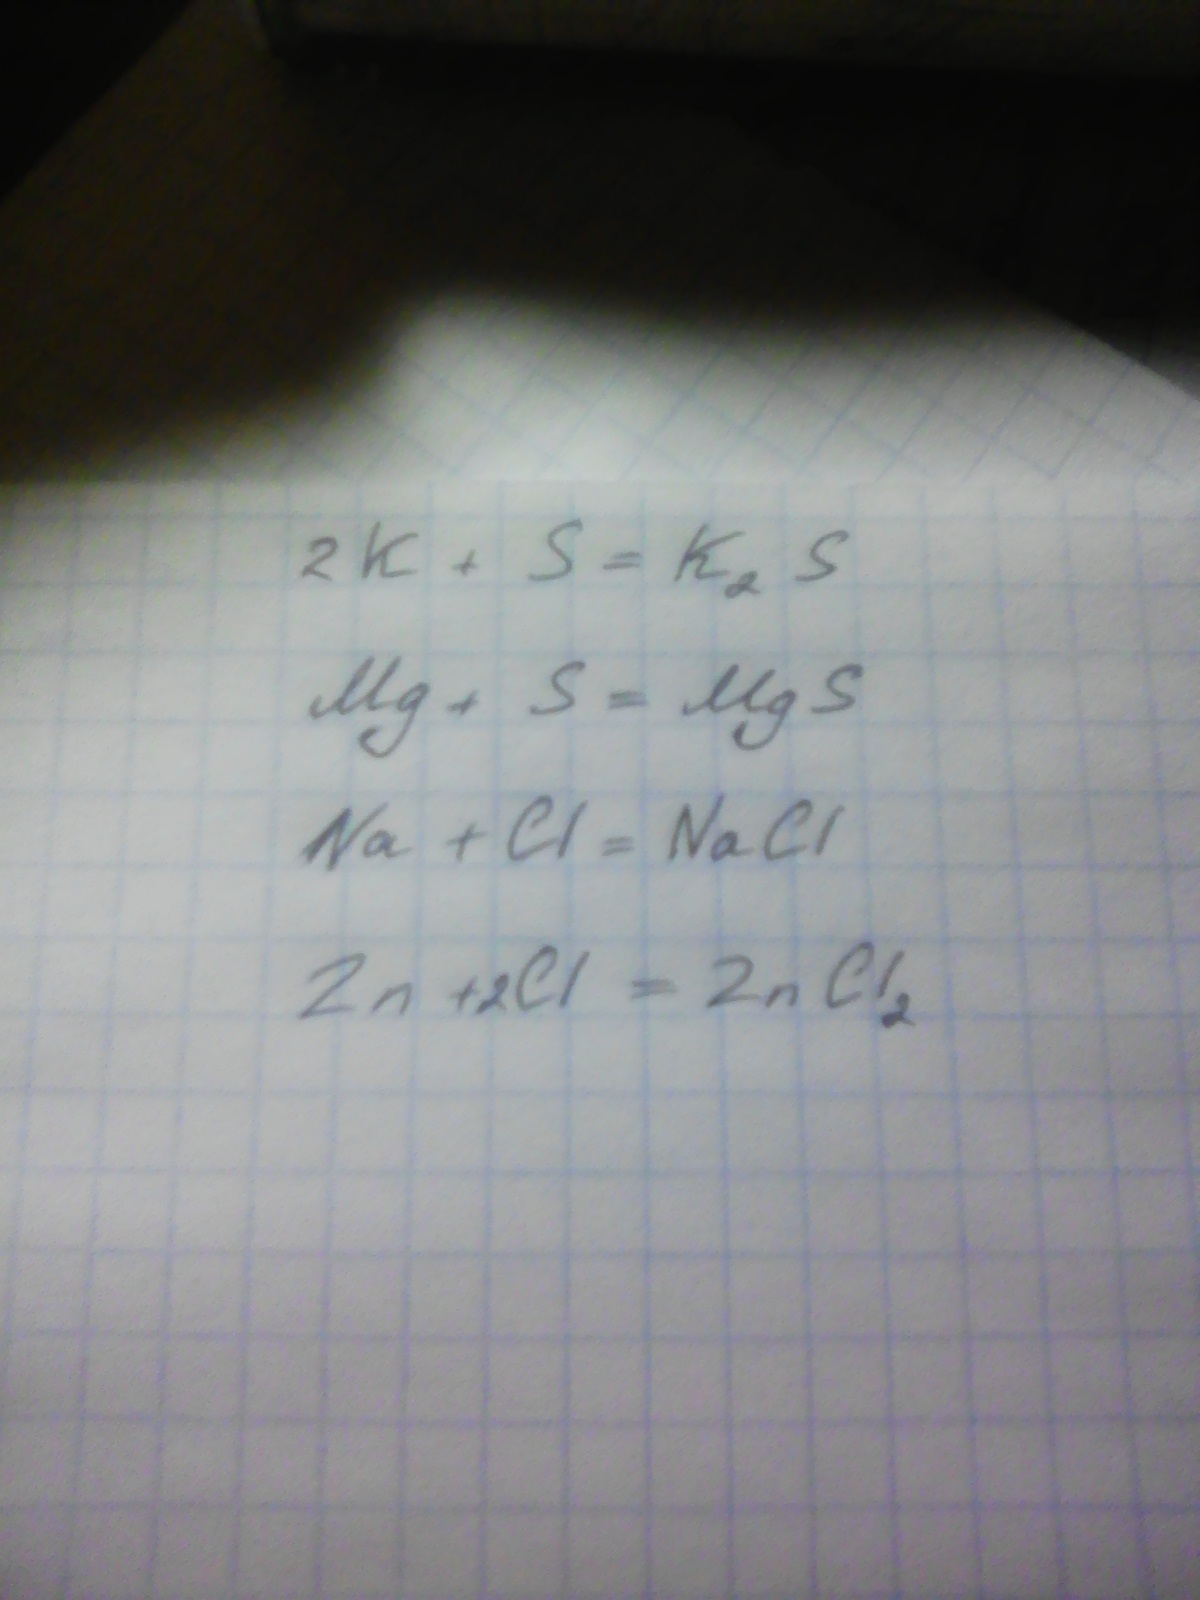 2K + S = K₂ S
Mg + S = MgS
Na + Cl = NaCl
Zn +2Cl = ZnCl₂